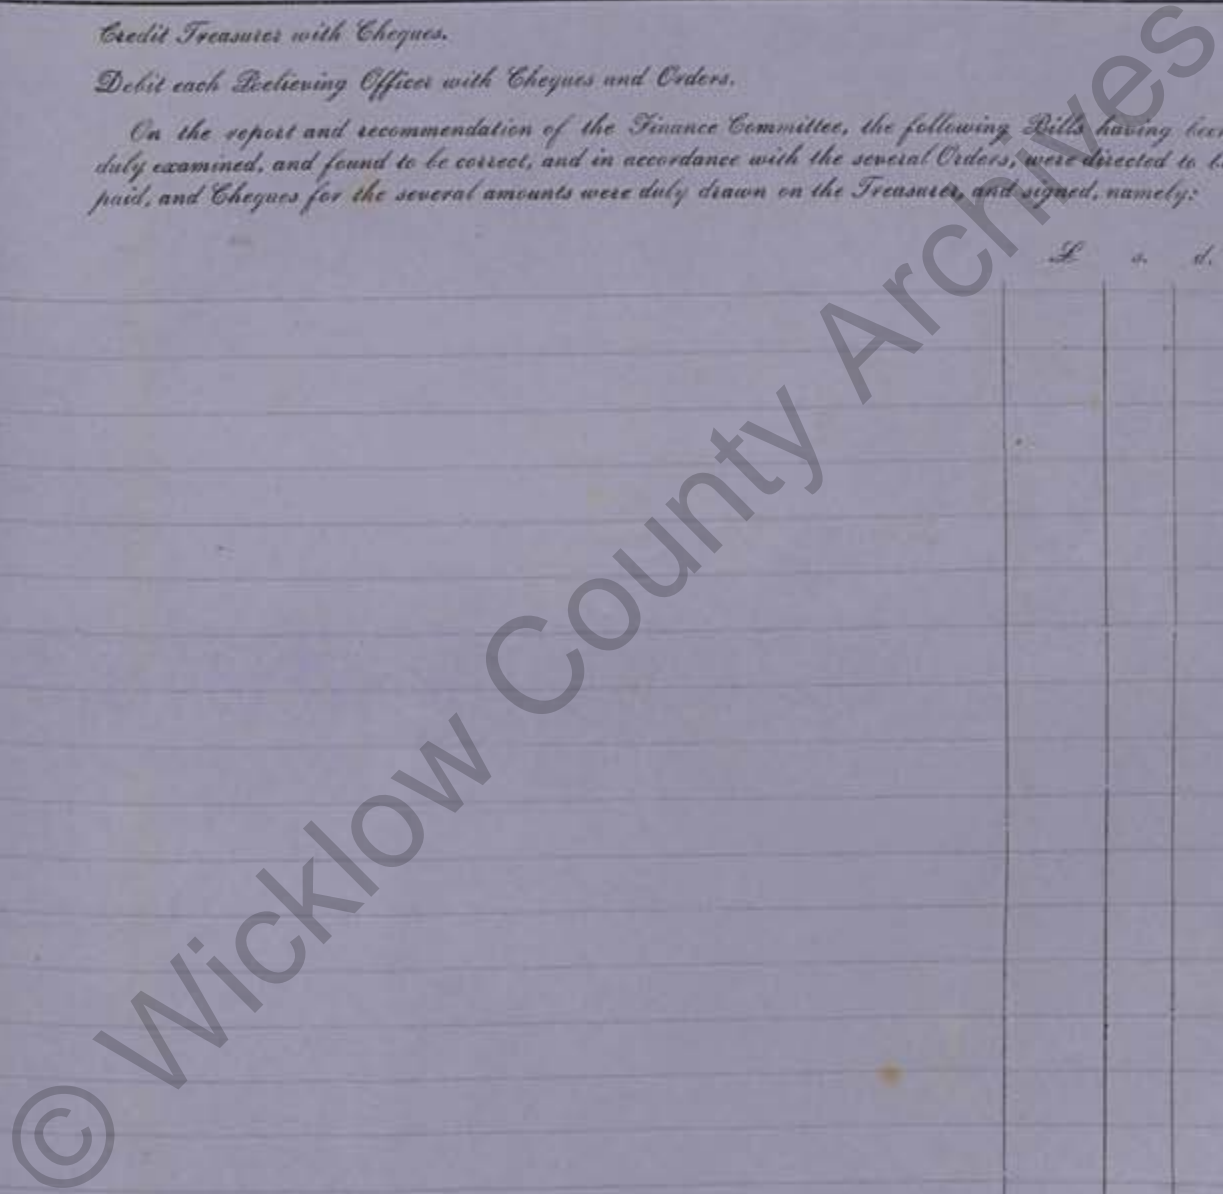 Credit Treasurer with Cheques.
Debit each Relieving Officer with Cheques and Orders.
On the report and recommendation of the Finance Committee, the following Bills having been
duly examined, and found to be correct, and in accordance with the several Orders, were directed to be
paid, and Cheques for the several amounts were duly drawn on the Treasurer, and signed, namely:
£ s. d.
© Wicklow County Archives